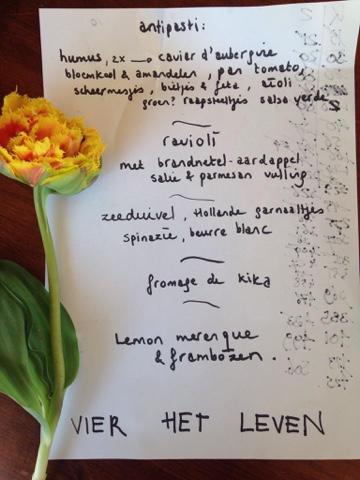 antipasti:
humus, 2x → caviar d'aubergine
bloemkool & amandelen, pan tomato,
scheermesjes, bietjes & feta, aïoli
groen? raapsteeltjes salsa verde
ravioli
met brandnetel-aardappel
salie & parmesan vulling
zeeduivel, Hollandse garnaaltjes
spinazie, beurre blanc
fromage de kika
Lemon merengue
& frambozen.
VIER HET LEVEN